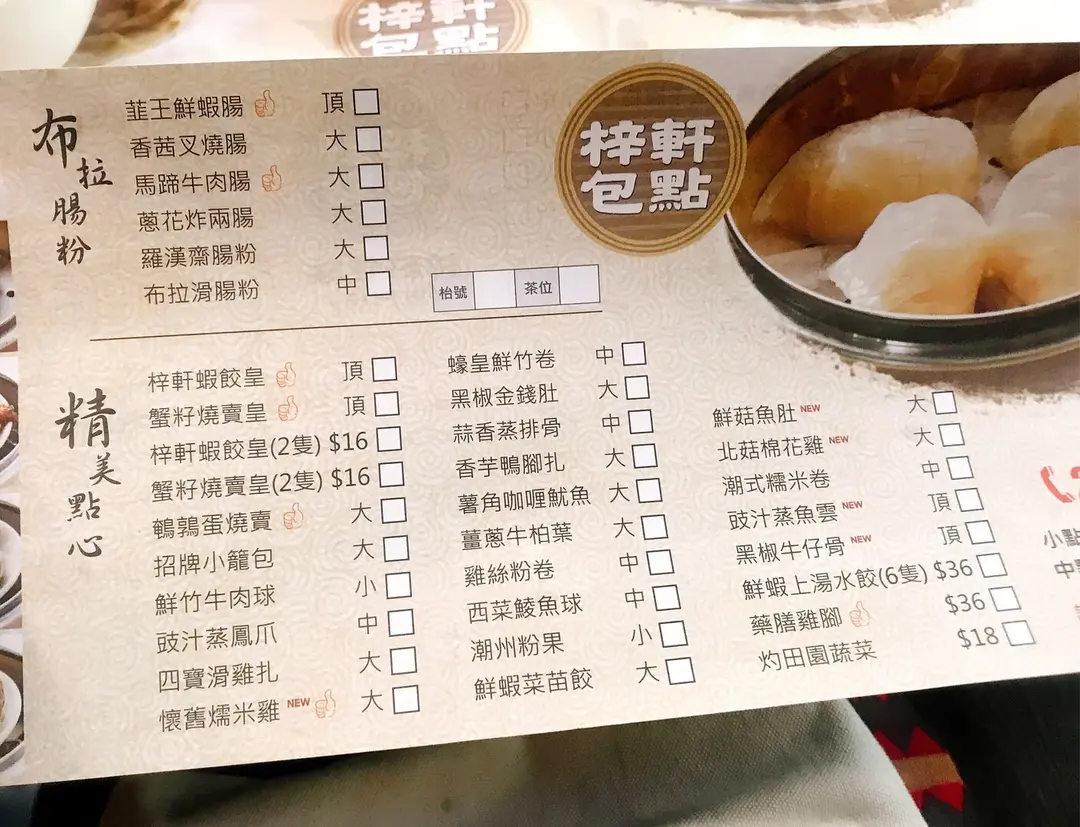 梓軒
包點
布拉腸粉
韮王鮮蝦腸 頂
香茜叉燒腸 大
馬蹄牛肉腸 大
蔥花炸兩腸 大
羅漢齋腸粉 大
布拉滑腸粉 中
梓軒
包點
枱號 茶位
精美點心
梓軒蝦餃皇 頂
蟹籽燒賣皇 頂
梓軒蝦餃皇(2隻) $16
蟹籽燒賣皇(2隻) $16
鵪鶉蛋燒賣 大
招牌小籠包 大
鮮竹牛肉球 小
豉汁蒸鳳爪 中
四寶滑雞扎 大
懷舊燸米雞 NEW 大
蠔皇鮮竹卷 中
黑椒金錢肚 大
蒜香蒸排骨 中
香芋鴨腳扎 大
薯角咖喱魷魚 大
薑蔥牛柏葉 大
雞絲粉卷 中
西菜鯪魚球 中
潮州粉果 小
鮮蝦菜苗餃 大
鮮菇魚肚 NEW 大
北菇棉花雞 NEW 大
潮式糯米卷 中
豉汁蒸魚雲 NEW 頂
黑椒牛仔骨 NEW 頂
鮮蝦上湯水餃(6隻) $36
藥膳雞腳 $36
灼田園蔬菜 $18
小點
中點